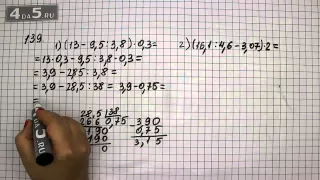 4DA5.RU
139
1) (13 - 9,5 : 3,8) · 0,3 =
= 13 · 0,3 - 9,5 : 3,8 · 0,3 =
= 3,9 - 2,85 : 3,8 =
= 3,9 - 28,5 : 38 = 3,9 - 0,75 =
=
2) (16,1 : 4,6 - 3,07) · 2 =
28,5 | 38
266 | 0,75
190
190
0
- 3,90
0,75
3,15